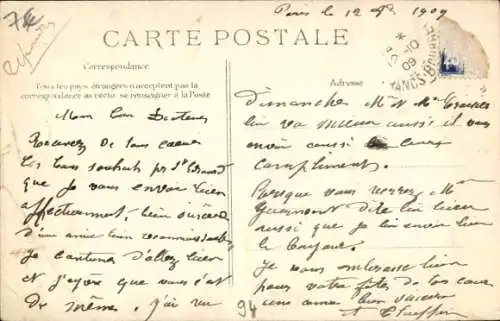 Paris le 12 1909
CARTE POSTALE
Correspondance
Tous les pays étrangers n'acceptent pas la
correspondance au recto se renseigner à la Poste
Adresse
Mon bon Docteur
Recevez de tout coeur
les bons souhaits pr St
que je vous envoie bien
affectueusement, bien sincère
d'une amie bien reconnaissante
je continue d'aller bien
et j'espère que vous c'est
de même, j'ai vu
94
Dimanche Mr et Me
lui va mieux aussi il vous
envoie aussi leurs
compliments.
Lorsque vous verrez Mr
dite lui bien
aussi que je lui envoie bien
le bonjour.
Je vous embrasse bien
pour votre fête de tout coeur
une amie bien sincère